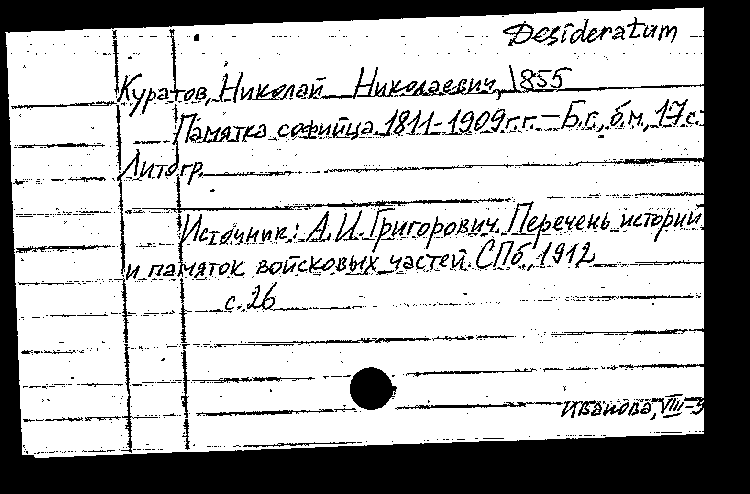 Desideratum
Куратов, Николай Николаевич, 1855
Памятка софийца 1811-1909 г.г. - Б.г., б.м., 17 с.
Литогр.
Источник: А.И. Григорович. Перечень историй
и памяток войсковых частей. СПб, 1912
с. 26
Иванова, VIII-9